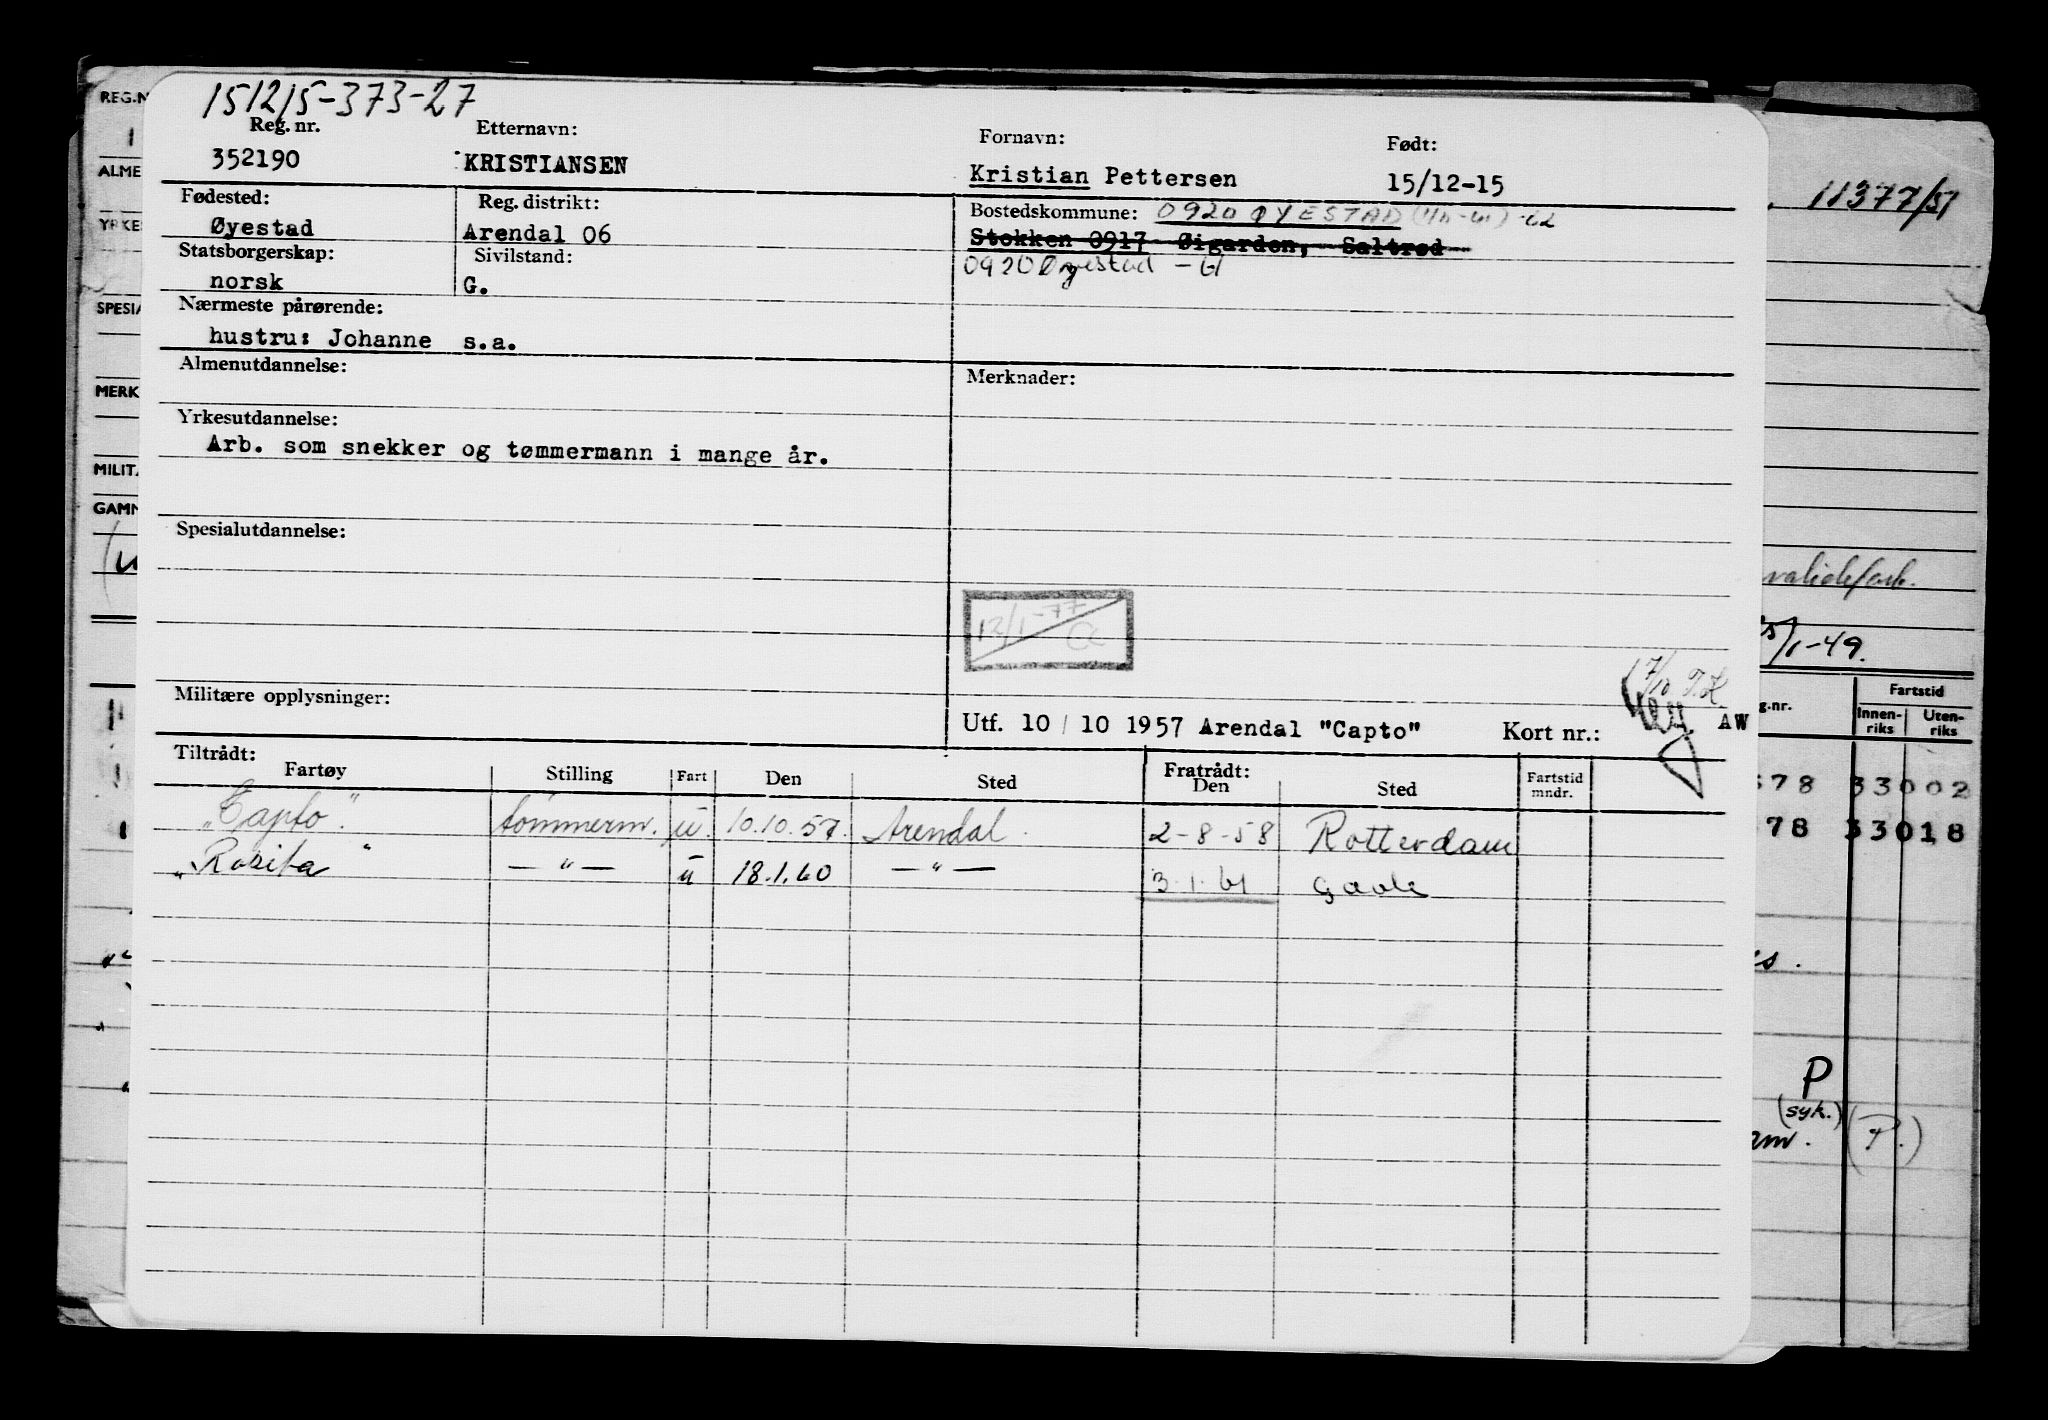 151215-373-27
REG.N
Reg. nr. Etternavn: Fornavn: Født:
352190 KRISTIANSEN Kristian Pettersen 15/12-15
ALME
Fødested: Reg. distrikt: Bostedskommune: 0920 ØYESTAD
11377/51
YRKE
Øyestad Arendal 06 Stokken 0917 Øigarden, Saltrød
Statsborgerskap: Sivilstand: 0920 Øyestad - 61
norsk G.
SPESIA
Nærmeste pårørende:
hustru: Johanne s.a.
Almenutdannelse: Merknader:
MERK
Yrkesutdannelse:
Arb. som snekker og tømmermann i mange år.
MILITÆ
GAMM
Spesialutdannelse:
12/1-77
/1-49.
17/10 T.K
Militære opplysninger:
Utf. 10 / 10 1957 Arendal "Capto" Kort nr.: AW
g.nr. Fartstid
Innen-riks Uten-riks
Tiltrådt: Fratrådt:
Fartøy Stilling Fart Den Sted Den Sted Fartstid mndr.
"Capto". tømmerm. u. 10.10.57. Arendal. 2-8-58 Rotterdam
78 33002
"Rosita" — " — u 18.1.60 — " — 3.1.61 Gävle
78 33018
P
(syk.)
(P.)